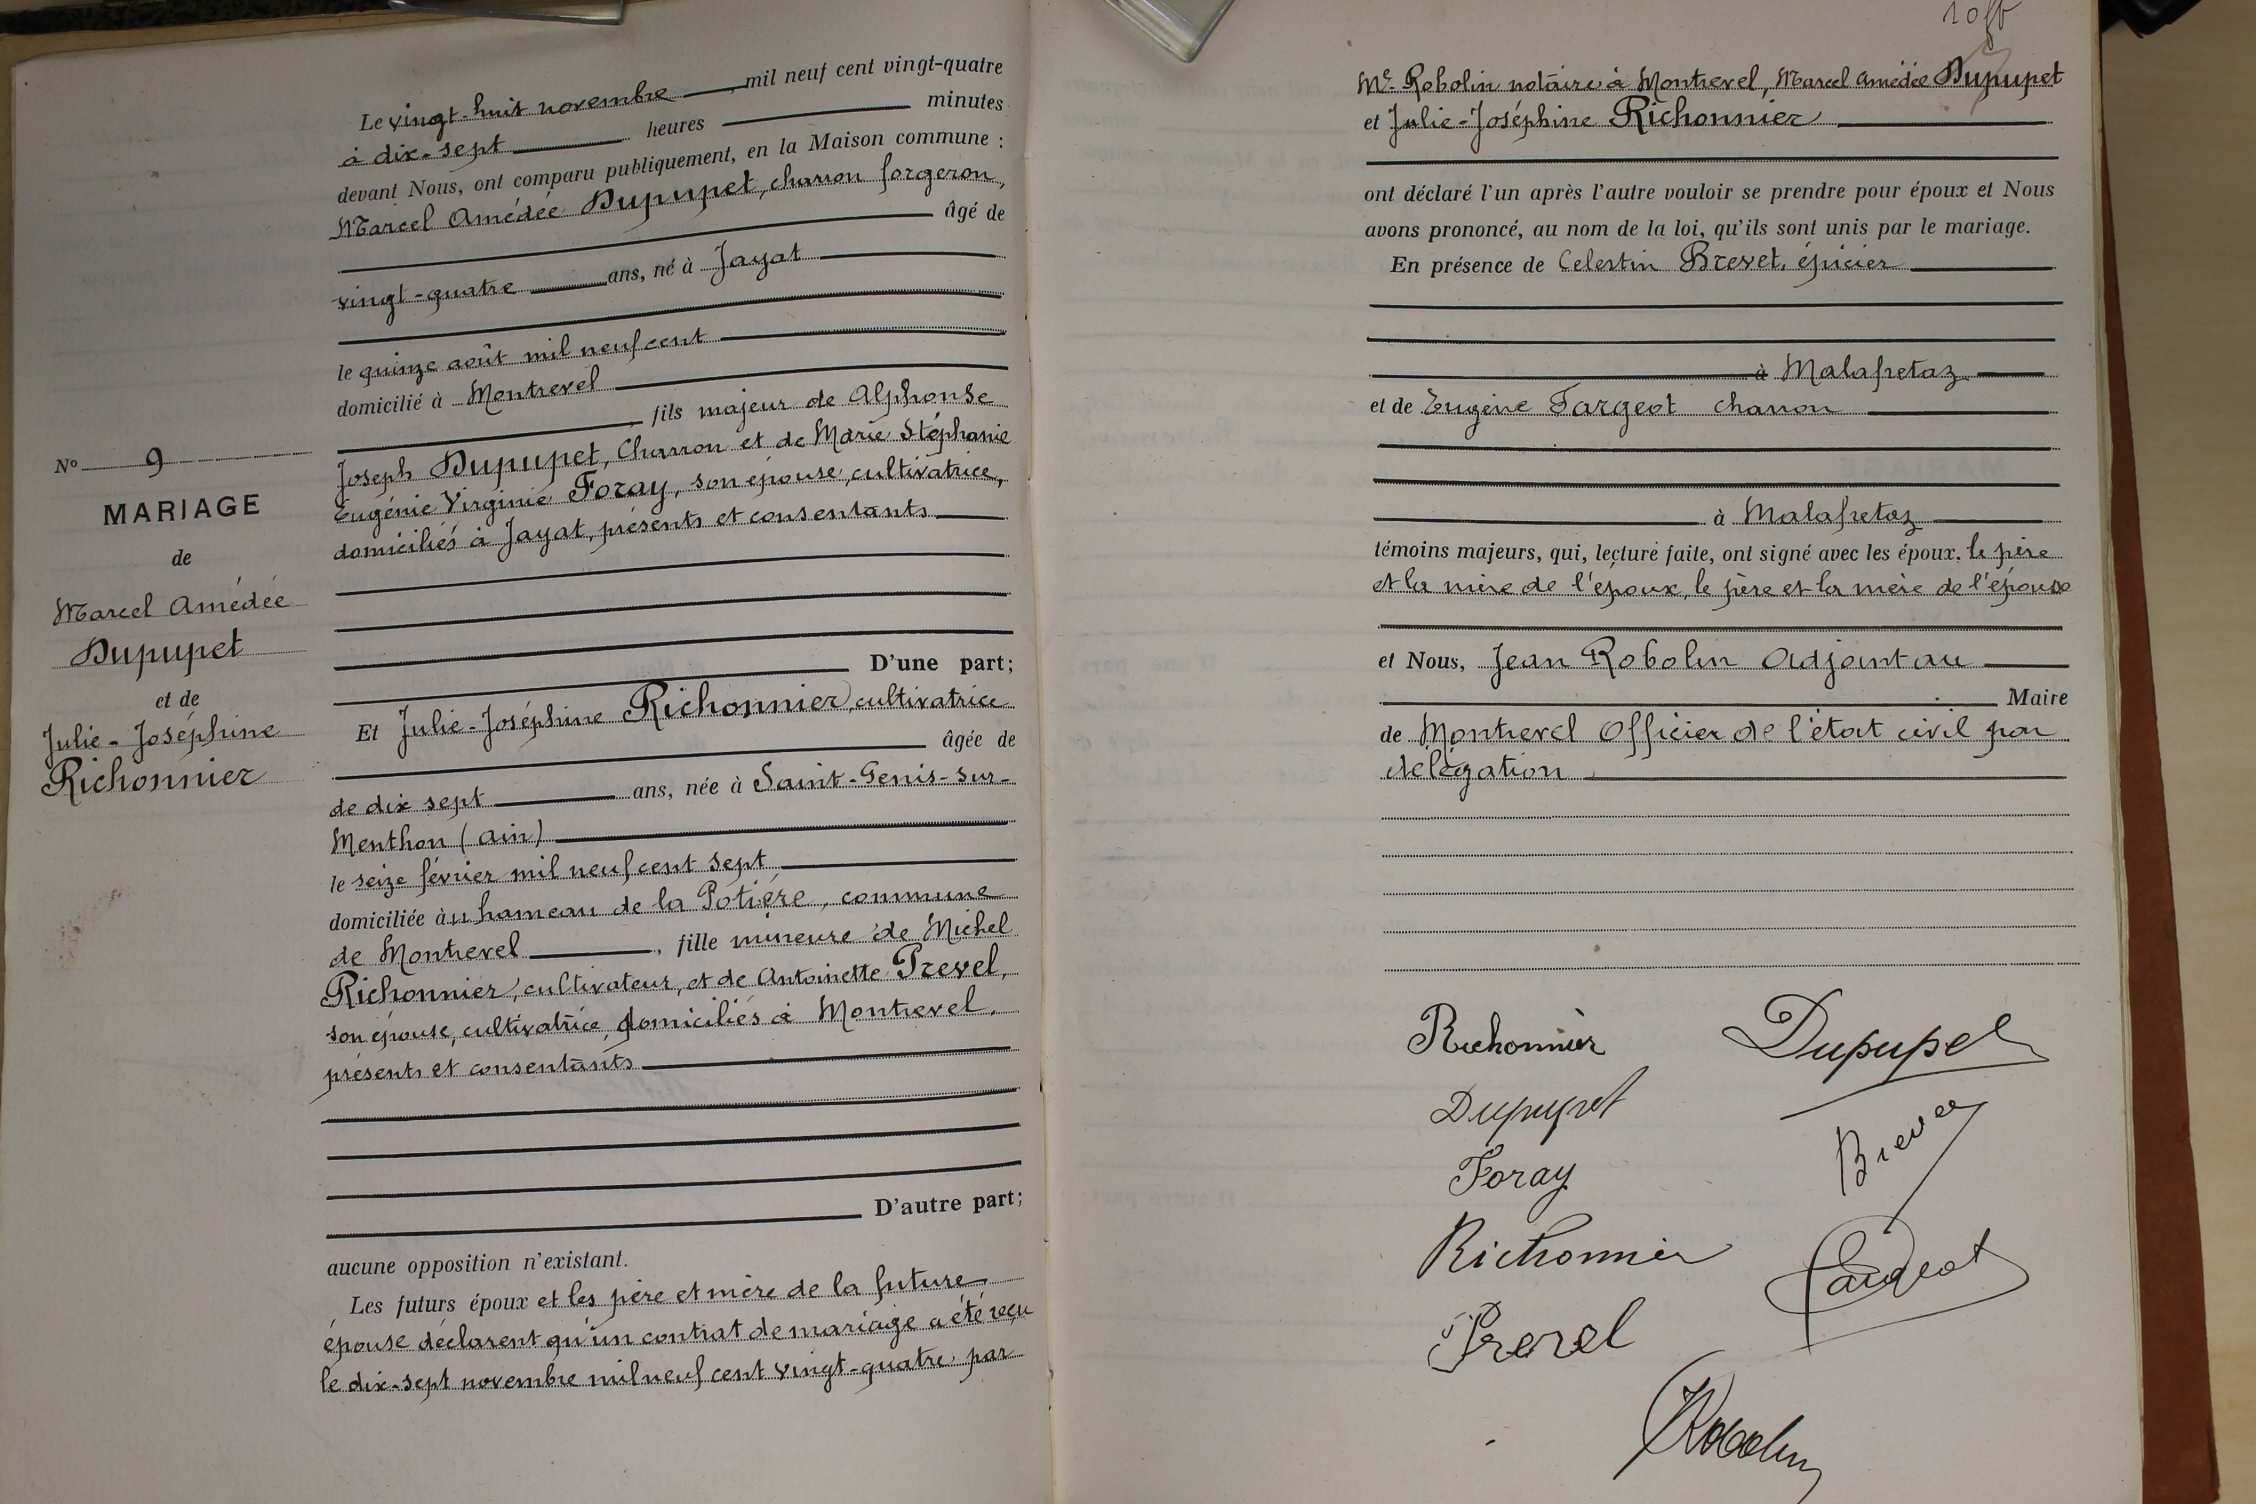 Nº 9
MARIAGE
de
Marcel Amédée
Dupupet
et de
Julie-Joséphine
Richonnier
Le vingt-huit novembre, mil neuf cent vingt-quatre
à dix-sept heures minutes
devant Nous, ont comparu publiquement, en la Maison commune :
Marcel Amédée Dupupet, charron forgeron,
âgé de
vingt-quatre ans, né à Jayat
le quinze août mil neuf cent
domicilié à Montrevel
, fils majeur de Alphonse
Joseph Dupupet, Charron et de Marie Stéphanie
Eugénie Virginie Foray, son épouse, cultivatrice,
domiciliés à Jayat, présents et consentants
D'une part;
Et Julie-Joséphine Richonnier, cultivatrice
âgée de
de dix sept ans, née à Saint-Genis-sur-
Menthon (Ain)
le seize février mil neuf cent sept
domiciliée à u hameau de la Potière, commune
de Montrevel, fille mineure de Michel
Richonnier, cultivateur, et de Antoinette Prevel,
son épouse, cultivatrice, domiciliés à Montrevel,
présents et consentants
D'autre part;
aucune opposition n'existant.
Les futurs époux et les père et mère de la future
épouse déclarent qu'un contrat de mariage a été reçu
le dix-sept novembre mil neuf cent vingt-quatre par
Me Robolin notaire à Montrevel, Marcel Amédée Dupupet
et Julie-Joséphine Richonnier
ont déclaré l'un après l'autre vouloir se prendre pour époux et Nous
avons prononcé, au nom de la loi, qu'ils sont unis par le mariage.
En présence de Celestin Brevet, épicier
à Malafretaz
et de Eugène Fargeot charron
à Malafretaz
témoins majeurs, qui, lecture faite, ont signé avec les époux, le père
et la mère de l'époux, le père et la mère de l'épouse
et Nous, Jean Robolin Adjoint au
Maire
de Montrevel Officier de l'état civil par
délégation
Richonnier Dupupet
Dupupet
Brevet
Foray
Richonnier
Fargeot
Prevel
Robolin